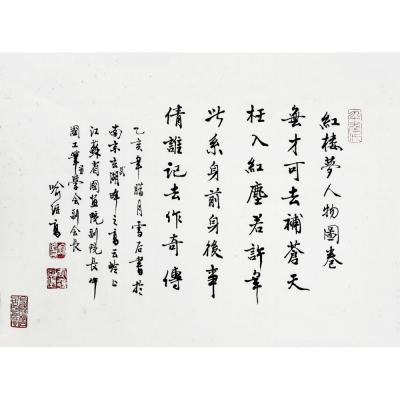 紅樓夢人物圖卷
無才可去補蒼天
枉入紅塵若許年
此系身前身後事
倩誰記去作奇傳
乙亥年腊月雪后書於
南京玄武湖畔之高云嶺上
江蘇省國畫院副院長
國工筆畫學會副會長
喻继高